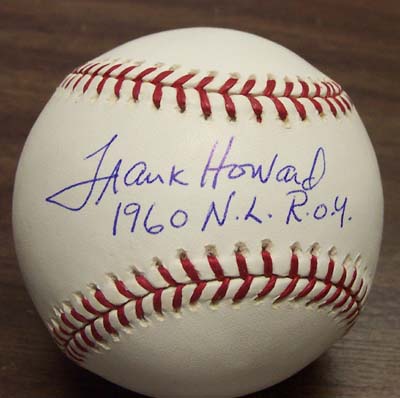 Frank Howard
1960 N.L. R.O.Y.